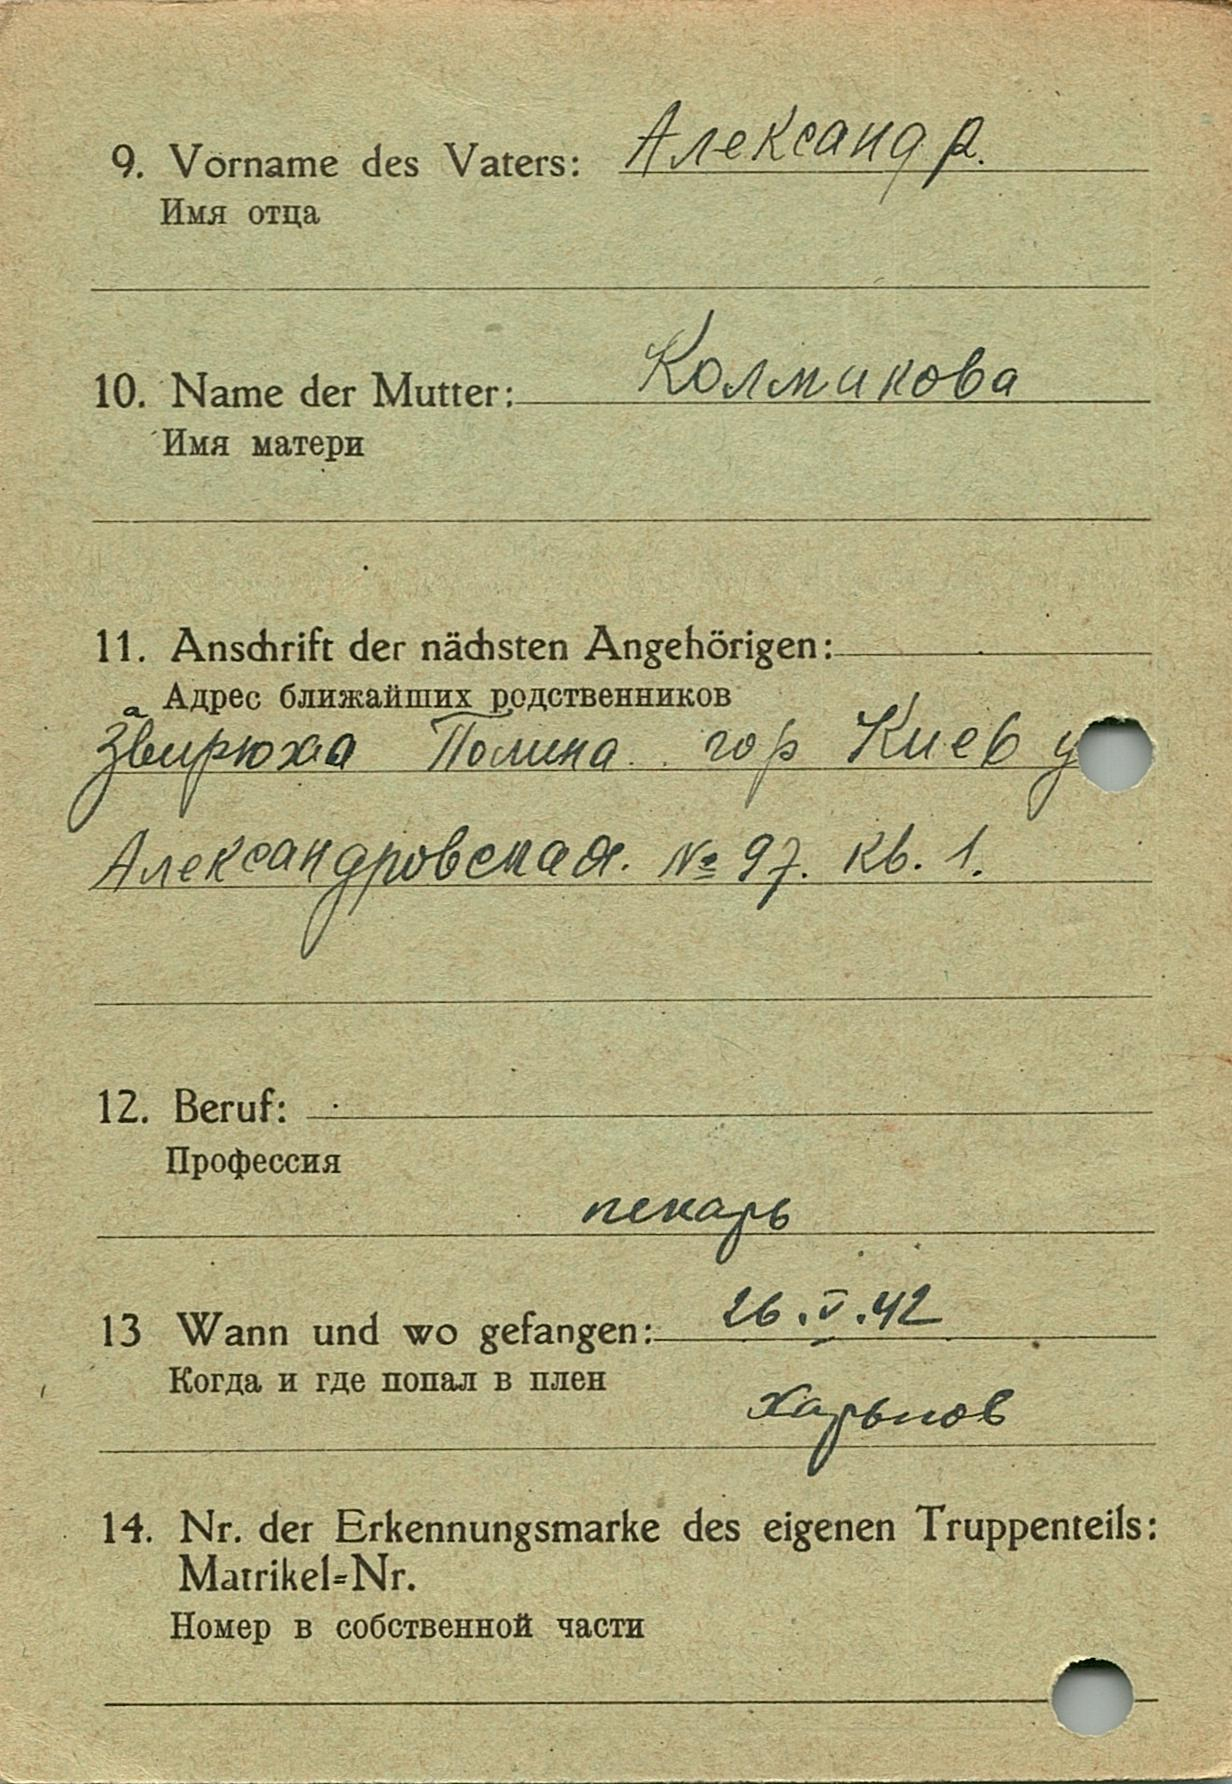 9. Vorname des Vaters: Александр.
Имя отца
10. Name der Mutter: Колмикова
Имя матери
11. Anschrift der nächsten Angehörigen:
Адрес ближайших родственников
Полина гор Киев у
Александровская. № 97. кв. 1.
12. Beruf:
Профессия
пекарь
13 Wann und wo gefangen: 26.V.42
Когда и где попал в плен
Харьков
14. Nr. der Erkennungsmarke des eigenen Truppenteils:
Matrikel=Nr.
Номер в собственной части